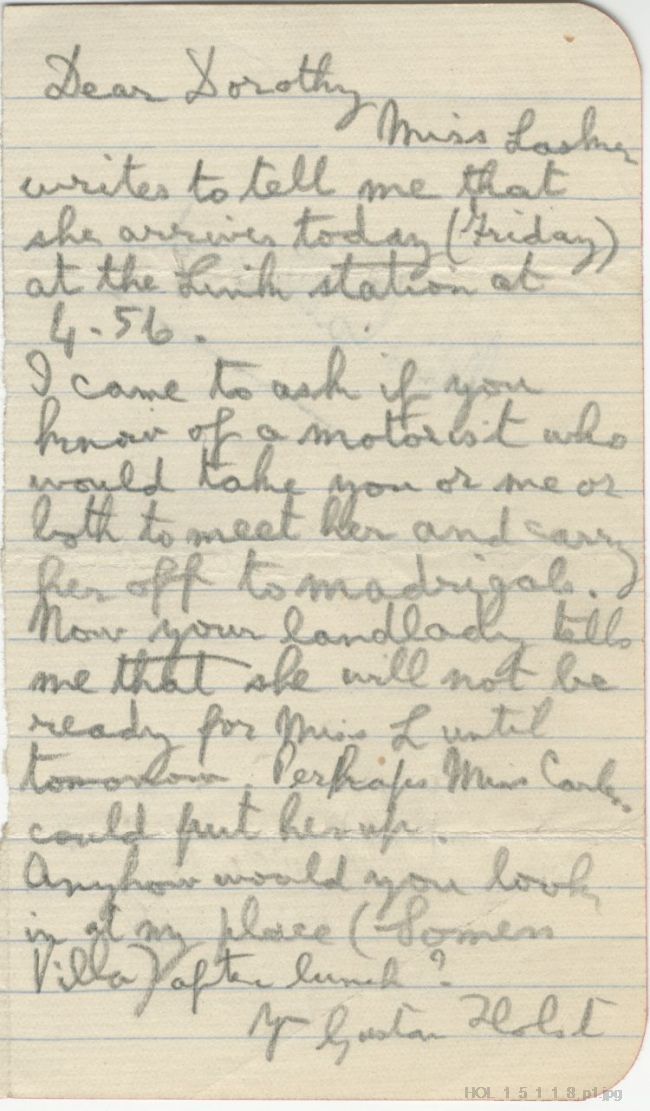 Dear Dorothy
Miss Lasker
writes to tell me that
she arrives today (Friday)
at the Link station at
4.56.
I came to ask if you
know of a motorist who
would take you or me or
both to meet her and carry
her off to madrigals.
Now your landlady tells
me that she will not be
ready for Miss L until
tomorrow. Perhaps Miss
could put her up.
Anyhow would you look
in at my place (Somers
Villa) after lunch?
Yr Gustav Holst
HOL_1_5_1_1_8_p1.jpg